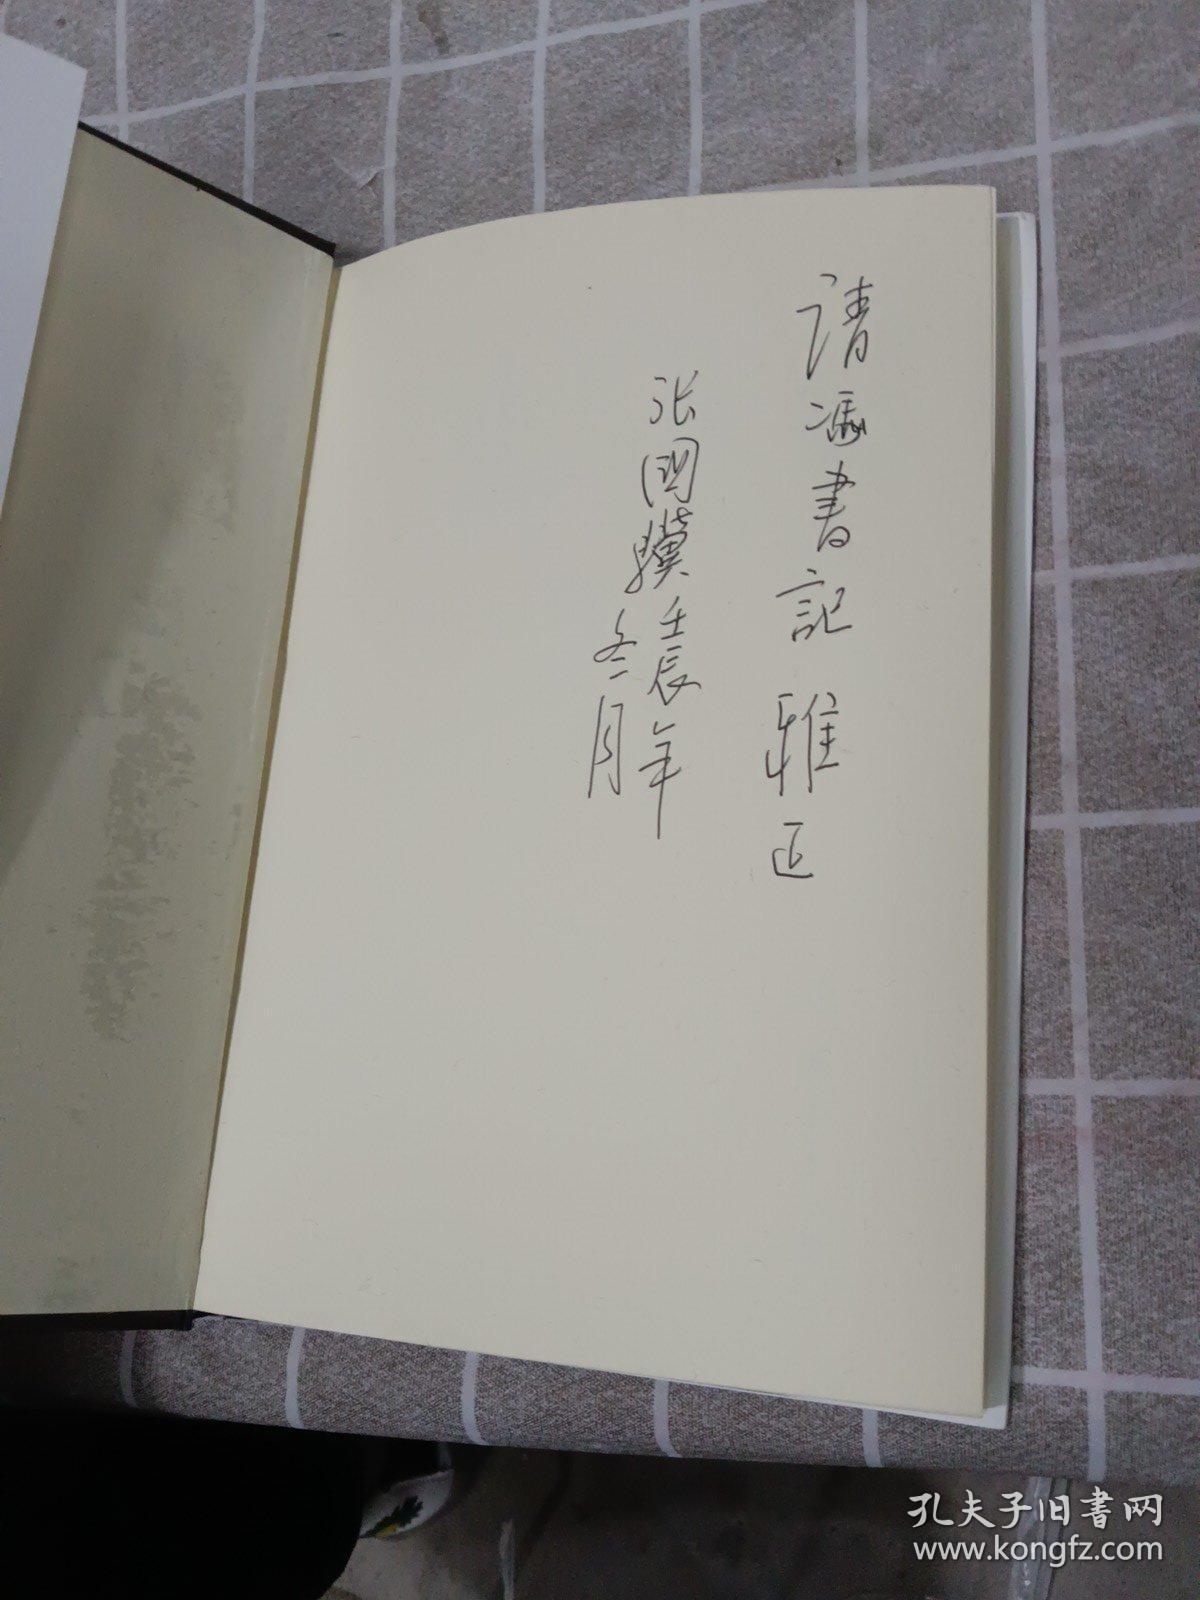 请馮書記 雅正
张國驥壬辰年
冬月
孔夫子旧书网
www.kongfz.com